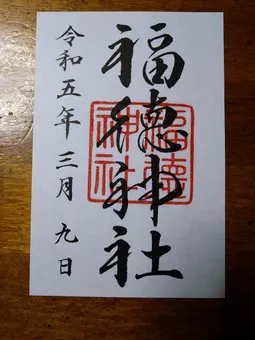 福徳神社
福徳神社
令和五年三月九日